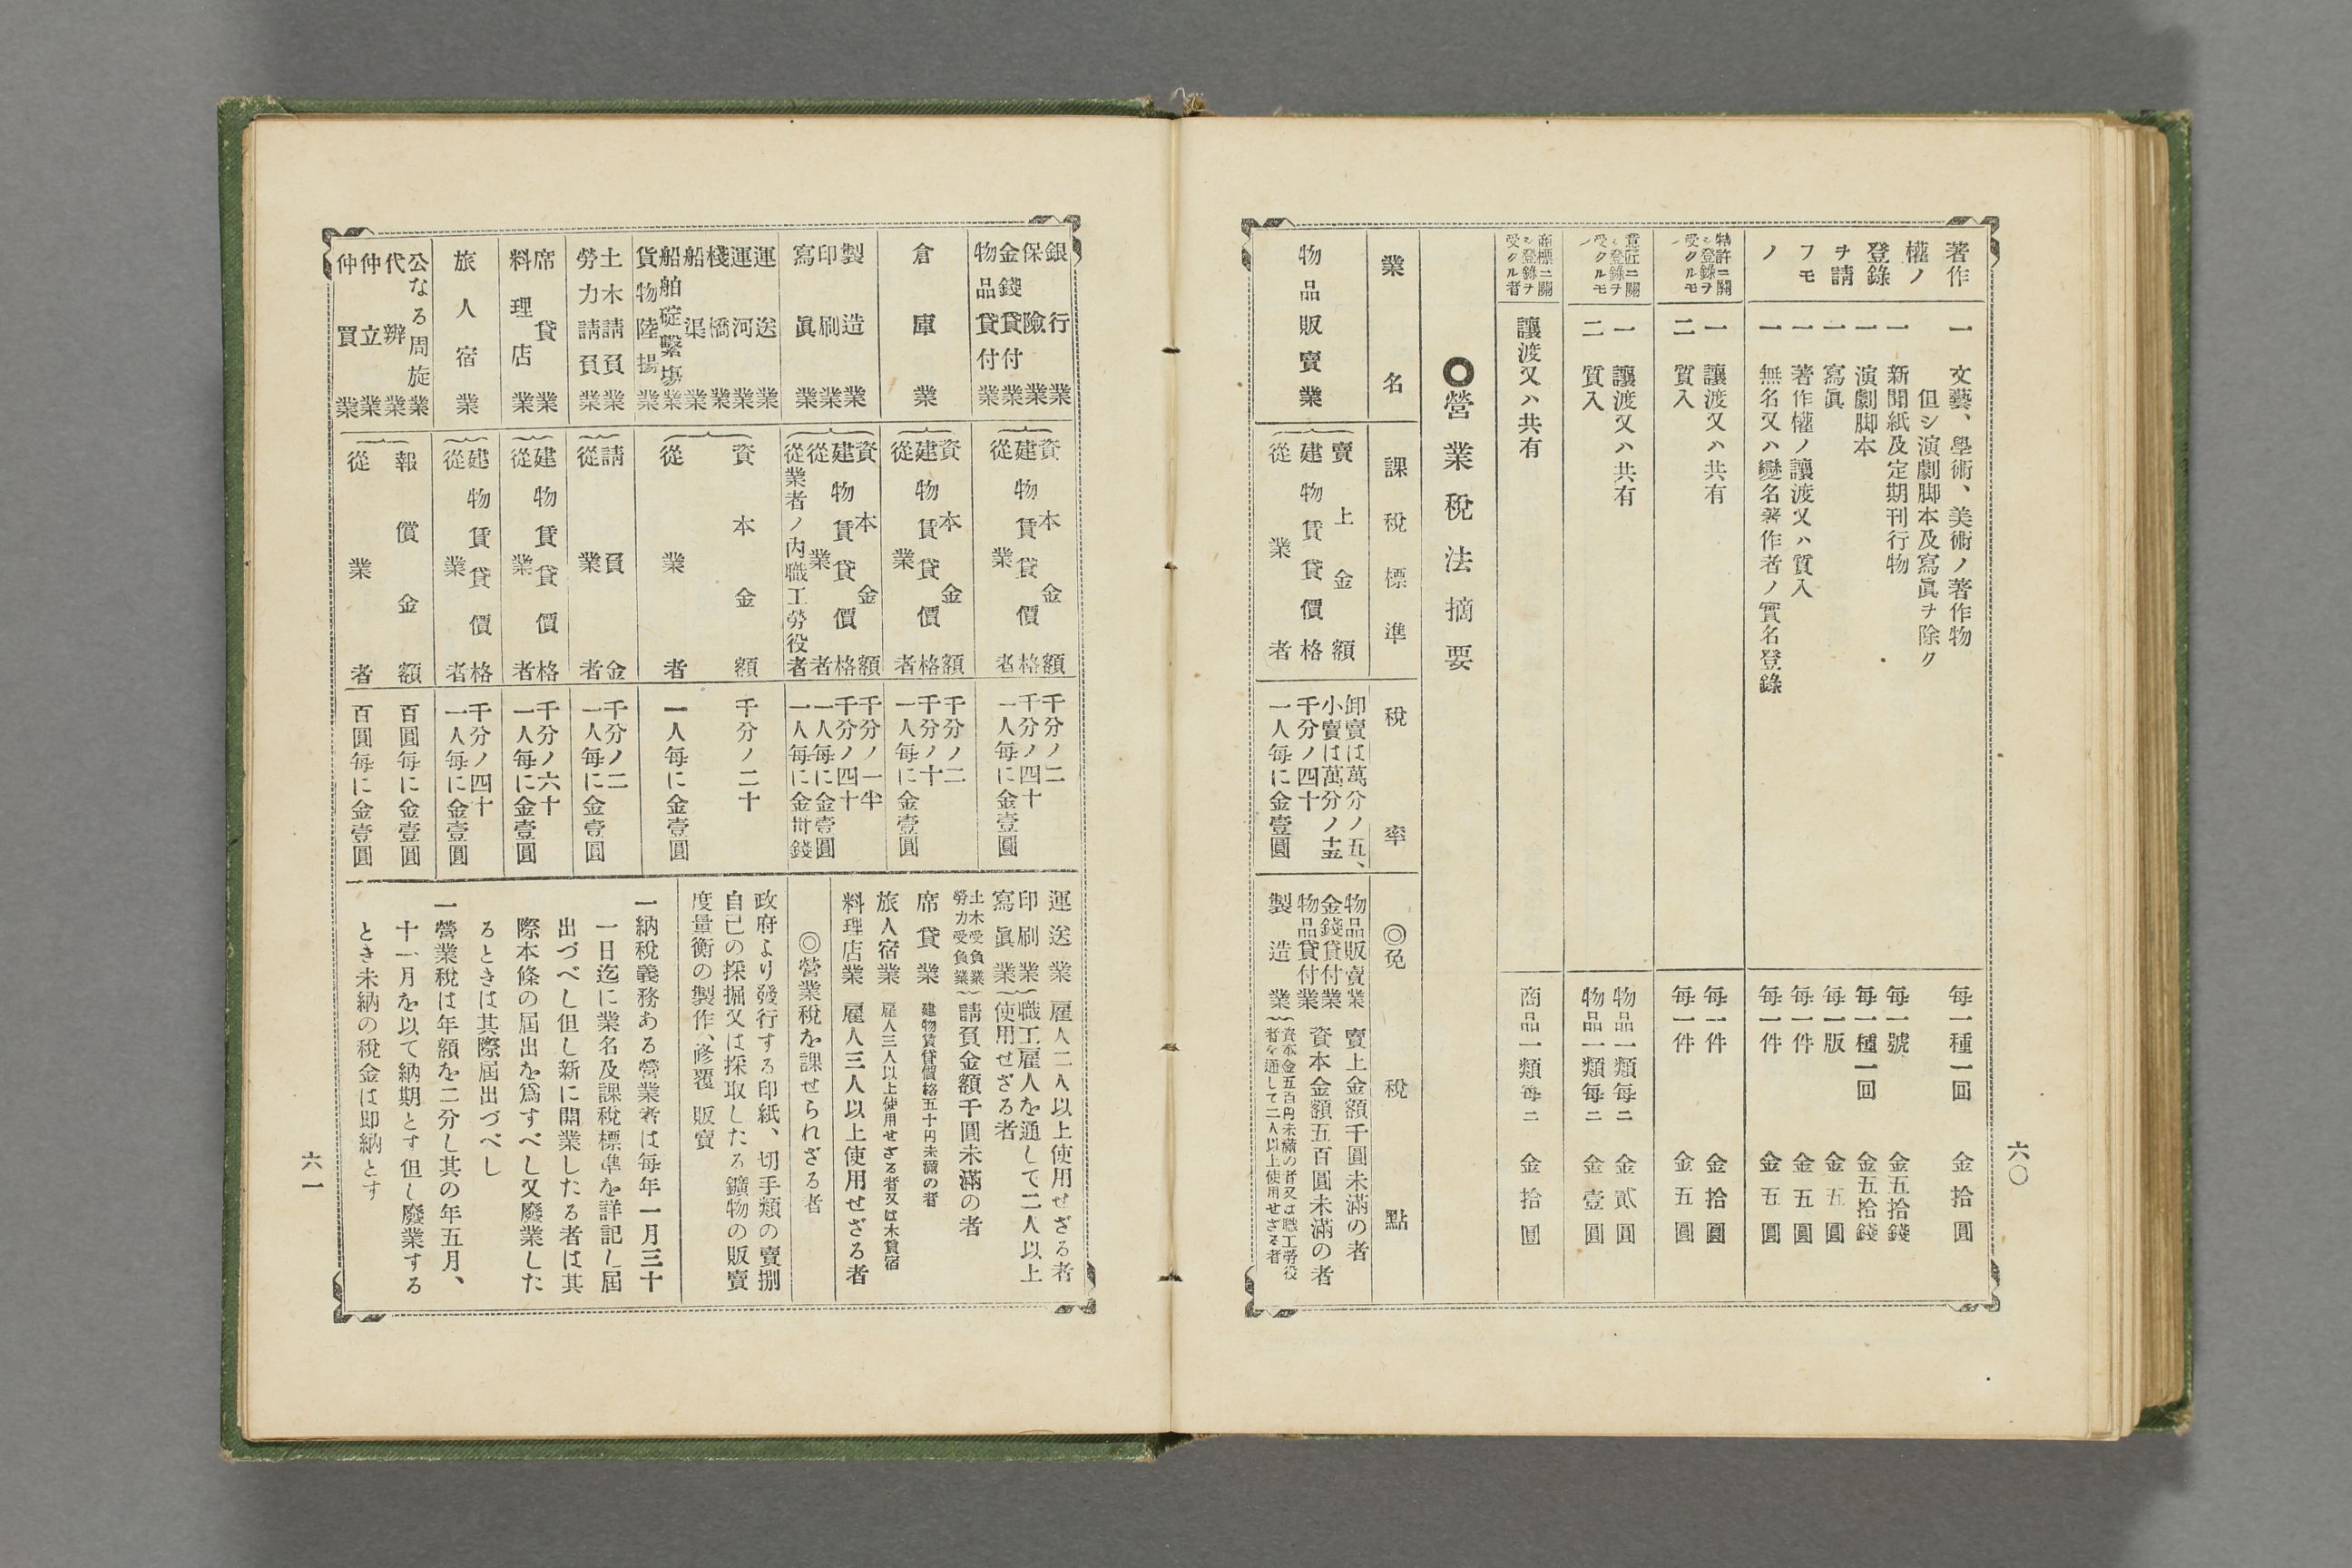 著作
權ノ
登錄
ヲ請
フモ
ノ
一 文藝、學術、美術ノ著作物 每一種一回 金拾圓
但シ演劇脚本及寫眞ヲ除ク
一 新聞紙及定期刊行物 每一號 金五拾錢
一 演劇脚本 每一種一回 金五拾錢
一 寫眞 每一版 金五圓
一 著作權ノ讓渡又ハ質入 每一件 金五圓
一 無名又ハ變名著作者ノ實名登錄 每一件 金五圓
特許ニ關
シ登錄ヲ
受クルモ
ノ
一 讓渡又ハ共有 每一件 金拾圓
二 質入 每一件 金五圓
意匠ニ關
シ登錄ヲ
受クルモ
ノ
一 讓渡又ハ共有 物品一類每ニ 金貳圓
二 質入 物品一類每ニ 金壹圓
商標ニ關
シ登錄ヲ
受クル者
讓渡又ハ共有 商品一類每ニ 金拾圓
◎營業稅法摘要
業名 課稅標準 稅率
物品販賣業
賣上金額
建物賃貸價格
從業者
卸賣は萬分ノ五、
小賣は萬分ノ十五
千分ノ四十
一人每に金壹圓
◎免稅點
物品販賣業 賣上金額千圓未滿の者
金錢貸付業
物品貸付業
資本金額五百圓未滿の者
製造業
資本金五百円未滿の者又は職工勞役
者を通して二人以上使用せざる者
六〇
銀行業
保險業
金錢貸付業
物品貸付業
資本金額 千分ノ二
建物賃貸價格 千分ノ四十
從業者 一人每に金壹圓
倉庫業
資本金額 千分ノ二
建物賃貸價格 千分ノ十
從業者 一人每に金壹圓
製造業
印刷業
寫眞業
資本金額 千分ノ一半
建物賃貸價格 千分ノ四十
從業者 一人每に金壹圓
從業者ノ內職工勞役者 一人每に金卅錢
運送業
運河業
棧橋業
船渠業
船舶碇繫塲業
貨物陸揚業
資本金額 千分ノ二十
從業者 一人每に金壹圓
土木請負業
勞力請負業
請負金 千分ノ二
從業者 一人每に金壹圓
席貸業
料理店業
建物賃貸價格 千分ノ六十
從業者 一人每に金壹圓
旅人宿業
建物賃貸價格 千分ノ四十
從業者 一人每に金壹圓
公なる周旋業
代辨業
仲立業
仲買業
報償金額 百圓每に金壹圓
從業者 百圓每に金壹圓
運送業 雇人二人以上使用せざる者
印刷業
寫眞業
職工雇人を通して二人以上
使用せざる者
土木受負業
勞力受負業
請負金額千圓未滿の者
席貸業 建物賃貸價格五十円未滿の者
旅人宿業 雇人三人以上使用せざる者又は木賃宿
料理店業 雇人三人以上使用せざる者
◎營業稅を課せられざる者
政府より發行する印紙、切手類の賣捌
自己の採掘又は採取したる鑛物の販賣
度量衡の製作、修覆 販賣
一納稅義務ある營業者は每年一月三十
一日迄に業名及課稅標準を詳記し屆
出づべし但し新に開業したる者は其
際本條の屆出を爲すべし又廢業した
るときは其際屆出づべし
一營業稅は年額を二分し其の年五月、
十一月を以て納期とす但し廢業する
とき未納の稅金は即納とす
六一